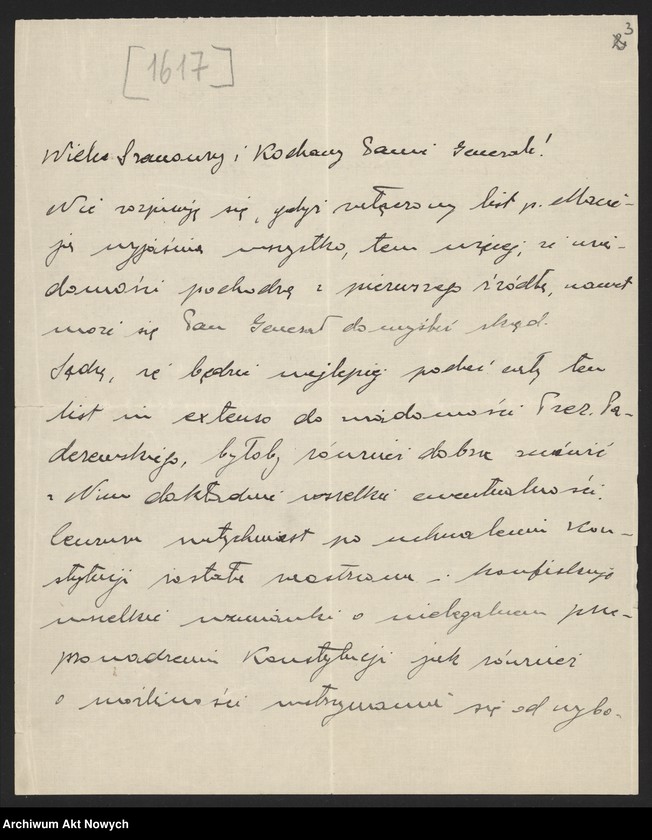 3
[1617]
Wielce Szanowny i Kochany Panie Generale!
Nie rozpisuję się, gdyż załączony list p. Macie-
ja wyjaśnia wszystko, tem więcej, że wia-
domości pochodzą z pierwszego źródła, nawet
może się Pan Generał domyśleć skąd.
Sądzę, że będzie najlepiej podać cały ten
list in extenso do wiadomości Prez. Pa-
derewskiego, byłoby również dobrze omówić
z Nim dokładnie wszelkie ewentualności.
Cenzura natychmiast po uchwaleniu Kon-
stytucji została zaostrzona i konfiskuje
wszelkie wzmianki o nielegalnem prze-
prowadzeniu Konstytucji jak również
o możliwości wstrzymania się od wybo-
Archiwum Akt Nowych